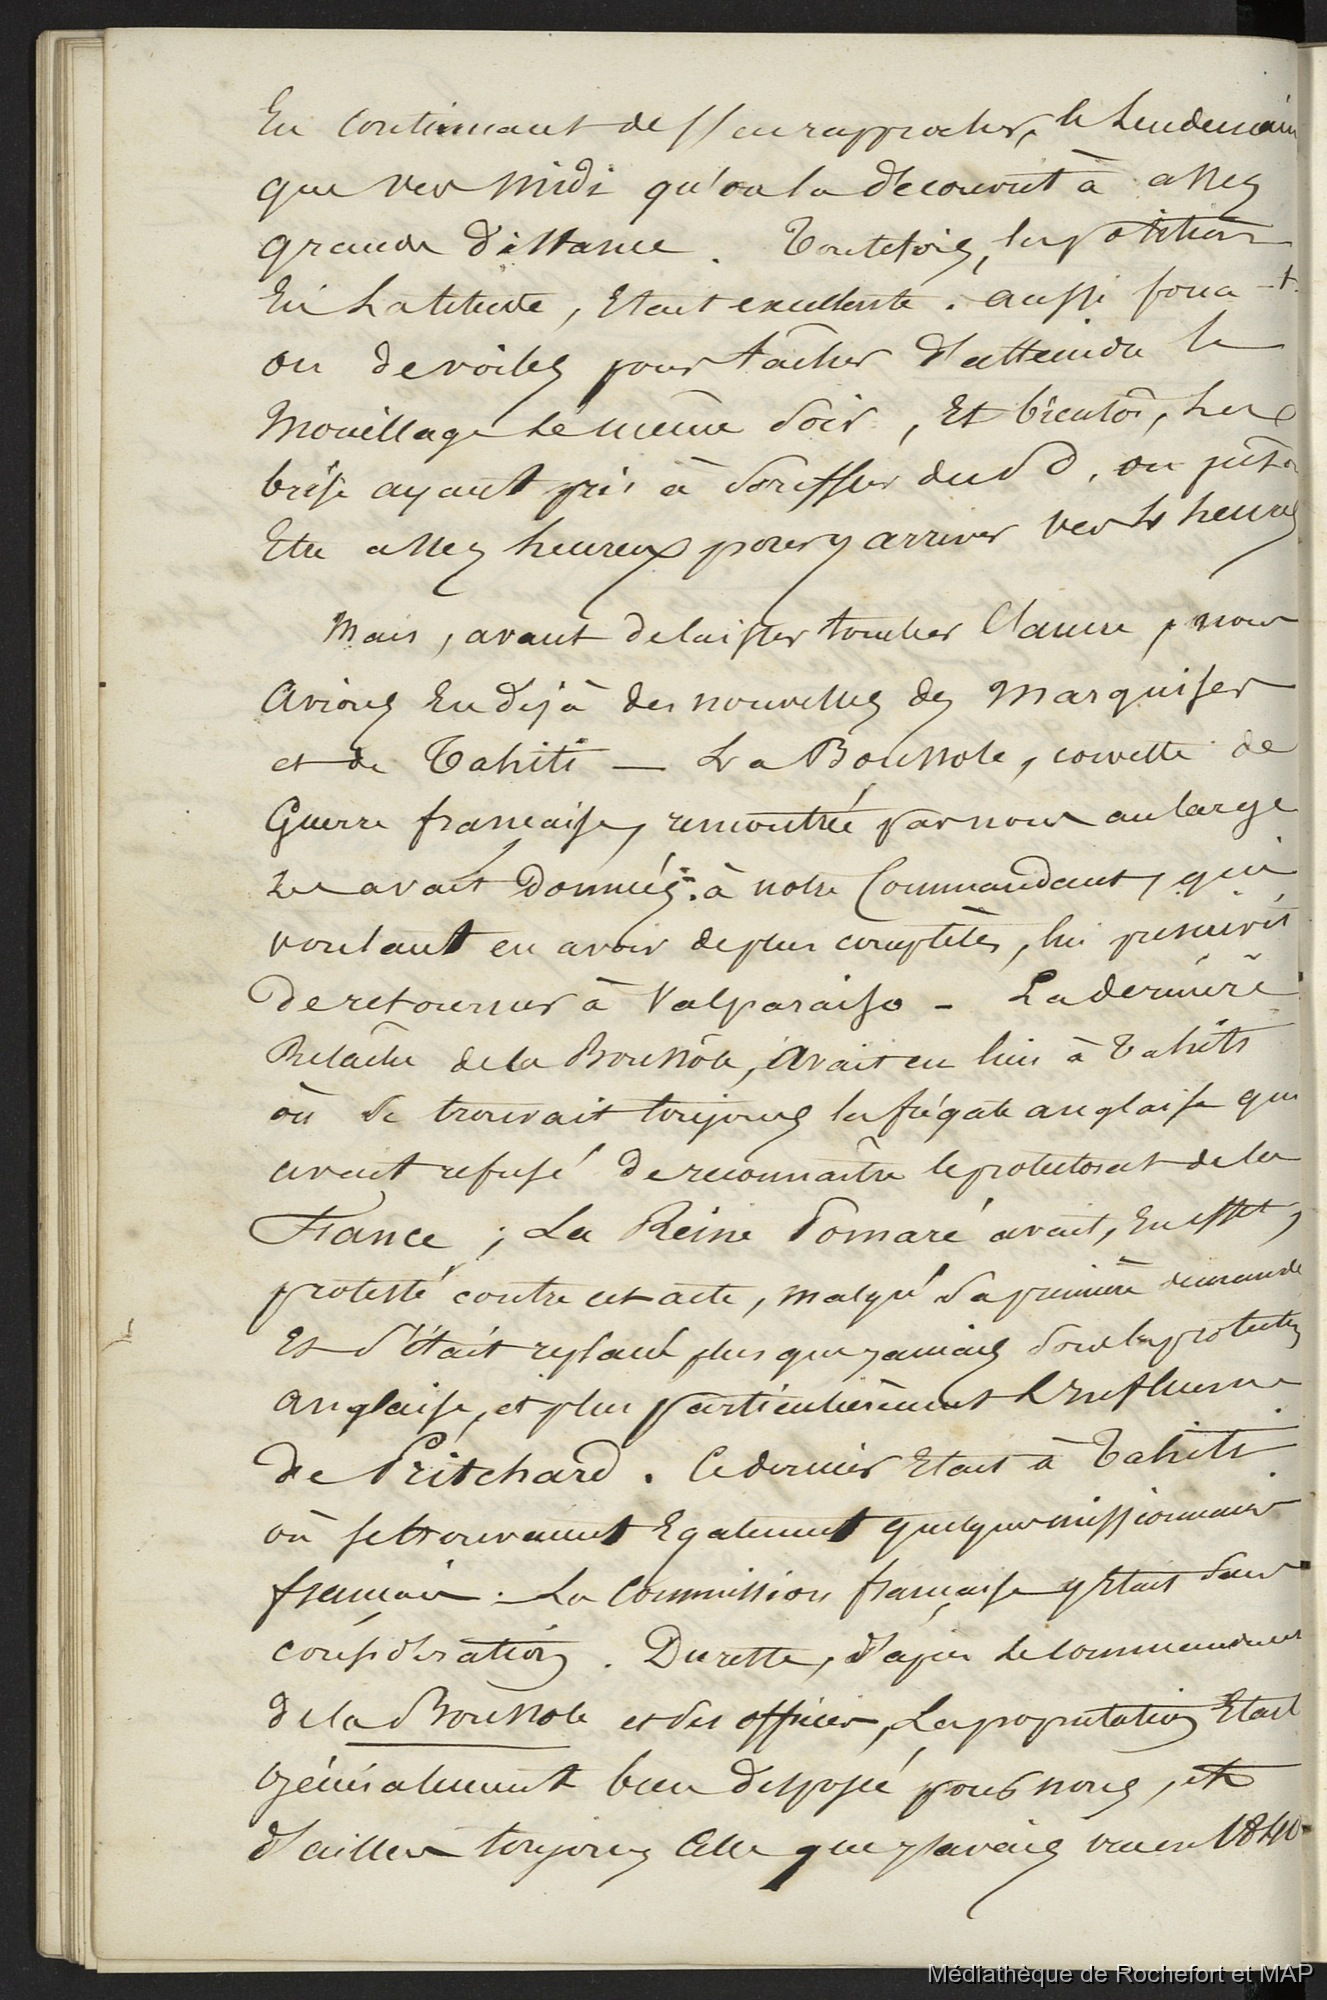 En continuant de s'en rapprocher, le lendemain
que vers midi qu'on la découvrit à assez
grande distance. Toutefois, la position
En Latitude, Etait excellente. aussi força-t-
on de voiles pour tâcher d'atteindre le
Mouillage le même Soir, Et bientôt, la
brise ayant pris à Souffler du SO, on put
Etre assez heureux pour y arriver vers 4 heures
Mais, avant de laisser tomber l'ancre, nous
Avions Eu déjà des nouvelles des Marquises
et de Tahiti — La Boussole, corvette de
Guerre française, rencontrée par nous au large
les avait Données à notre Commandant, qui
voulant en avoir de plus complètes, lui prescrivit
De retourner à Valparaiso - La dernière
Relâche de la Boussole, Avait eu lieu à Tahiti
où Se trouvait toujours la frégate anglaise qui
avait refusé De reconnaître le protectorat de la
France ; La Reine Pomaré avait, En effet,
protesté contre cet acte, malgré Sa première demande
Et S'était replacée plus que jamais Sous la protection
Anglaise, et plus particulièrement L'Influence
De Pritchard. Ce dernier Etait à Tahiti
où se trouvaient Egalement quelques missionnaires
français. - La Commission française y Etait Sans
considération. Du reste, d'après le Commandant
de la Boussole et Ses officiers, La population Etait
Généralement bien disposée pour nous, et
d'ailleurs toujours Celle que j'avais vue en 1840